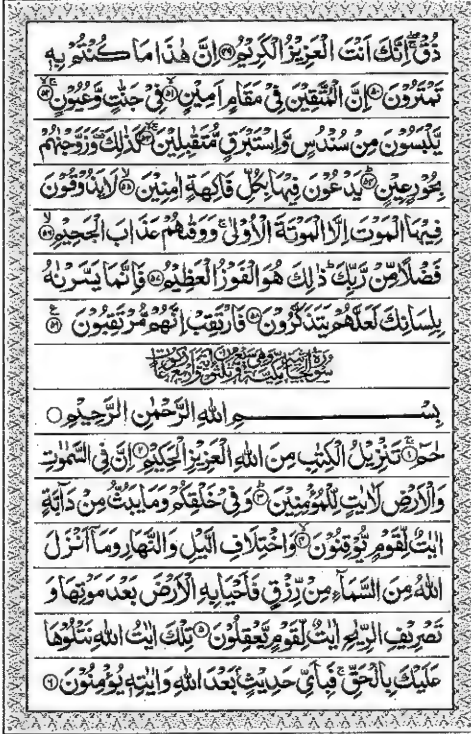 ذُقۡ ۚ اِنَّكَ اَنۡتَ الۡعَزِيۡزُ الۡكَرِيۡمُ ﴿۴۹﴾ اِنَّ هٰذَا مَا كُنۡتُمۡ بِهٖ
تَمۡتَرُوۡنَ ﴿۵۰﴾ اِنَّ الۡمُتَّقِيۡنَ فِىۡ مَقَامٍ اَمِيۡنٍۙ ﴿۵۱﴾ فِىۡ جَنّٰتٍ وَّعُيُوۡنٍ ۚۙ ﴿۵۲﴾
يَّلۡبَسُوۡنَ مِنۡ سُنۡدُسٍ وَّاِسۡتَبۡرَقٍ مُّتَقٰبِلِيۡنَ ۚۙ ﴿۵۳﴾ كَذٰلِكَ ۟ وَزَوَّجۡنٰهُمۡ
بِحُوۡرٍ عِيۡنٍؕ ﴿۵۴﴾ يَدۡعُوۡنَ فِيۡهَا بِكُلِّ فَاكِهَةٍ اٰمِنِيۡنَۙ ﴿۵۵﴾ لَا يَذُوۡقُوۡنَ
فِيۡهَا الۡمَوۡتَ اِلَّا الۡمَوۡتَةَ الۡاُوۡلٰى ۚ وَوَقٰٮهُمۡ عَذَابَ الۡجَحِيۡمِۙ ﴿۵۶﴾
فَضۡلًا مِّنۡ رَّبِّكَ ؕ ذٰلِكَ هُوَ الۡفَوۡزُ الۡعَظِيۡمُ ﴿۵۷﴾ فَاِنَّمَا يَسَّرۡنٰهُ
بِلِسَانِكَ لَعَلَّهُمۡ يَتَذَكَّرُوۡنَ ﴿۵۸﴾ فَارۡتَقِبۡ اِنَّهُمۡ مُّرۡتَقِبُوۡنَ ﴿۵۹﴾ ع
بِسۡمِ اللهِ الرَّحۡمٰنِ الرَّحِيۡمِ ○
حٰمٓ ۚ ﴿۱﴾ تَنۡزِيۡلُ الۡكِتٰبِ مِنَ اللهِ الۡعَزِيۡزِ الۡحَكِيۡمِ ﴿۲﴾ اِنَّ فِى السَّمٰوٰتِ
وَالۡاَرۡضِ لَاٰيٰتٍ لِّلۡمُؤۡمِنِيۡنَؕ ﴿۳﴾ وَفِىۡ خَلۡقِكُمۡ وَمَا يَبُثُّ مِنۡ دَآبَّةٍ
اٰيٰتٌ لِّقَوۡمٍ يُّوۡقِنُوۡنَۙ ﴿۴﴾ وَاخۡتِلَافِ الَّيۡلِ وَالنَّهَارِ وَمَاۤ اَنۡزَلَ
اللهُ مِنَ السَّمَآءِ مِنۡ رِّزۡقٍ فَاَحۡيَا بِهِ الۡاَرۡضَ بَعۡدَ مَوۡتِهَا وَ
تَصۡرِيۡفِ الرِّيٰحِ اٰيٰتٌ لِّقَوۡمٍ يَّعۡقِلُوۡنَ ﴿۵﴾ تِلۡكَ اٰيٰتُ اللهِ نَتۡلُوۡهَا
عَلَيۡكَ بِالۡحَقِّ ۚ فَبِاَىِّ حَدِيۡثٍۢ بَعۡدَ اللهِ وَاٰيٰتِهٖ يُؤۡمِنُوۡنَ ﴿۶﴾